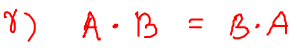 γ) A · B = B · A